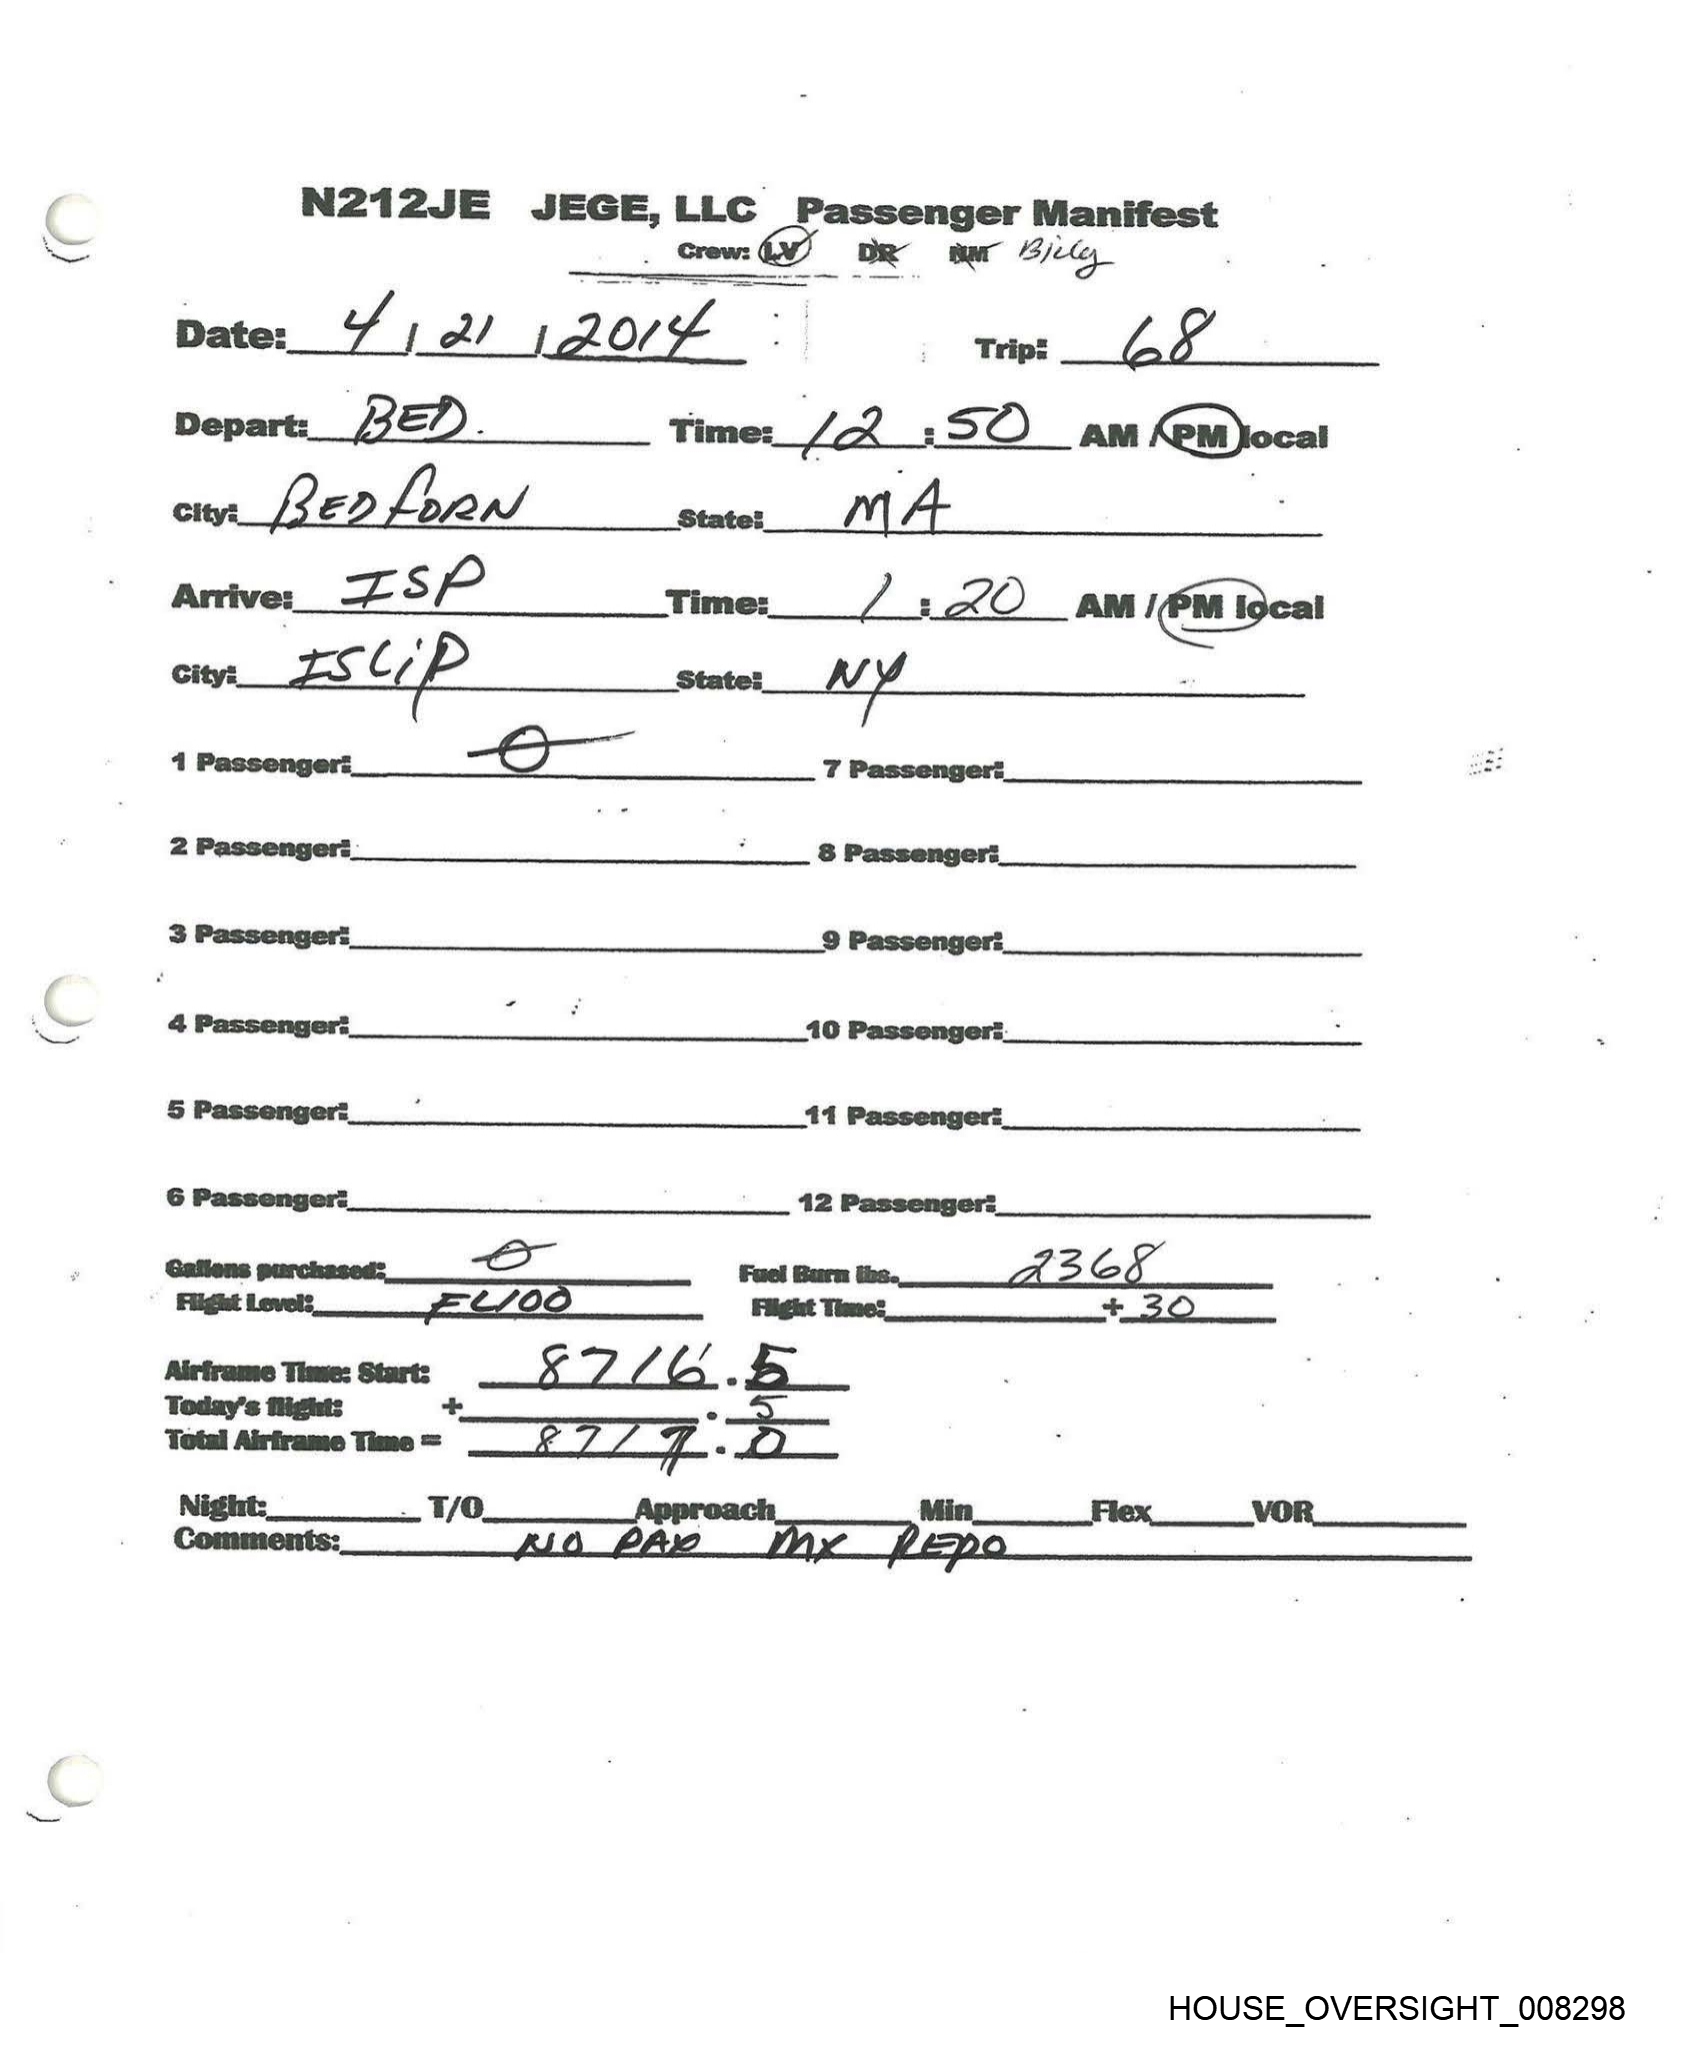 N212JE JEGE, LLC Passenger Manifest
Crew: LV DR NM Bill
Date: 4 / 21 / 2014 Trip: 68
Depart: BED. Time: 12 : 50 AM / PM local
City: BEDFORD State: MA
Arrive: ISP Time: 1 : 20 AM / PM local
City: ISLIP State: NY
1 Passenger: 0 7 Passenger:
2 Passenger: 8 Passenger:
3 Passenger: 9 Passenger:
4 Passenger: 10 Passenger:
5 Passenger: 11 Passenger:
6 Passenger: 12 Passenger:
Gallons purchased: 0 Fuel Burn lbs. 2368
Flight Level: FL100 Flight Time: + 30
Airframe Time: Start: 8716 . 5
Today's flight: + . 5
Total Airframe Time = 8717 . 0
Night: T/O Approach Min Flex VOR
Comments: NO PAX MX REPO
HOUSE_OVERSIGHT_008298